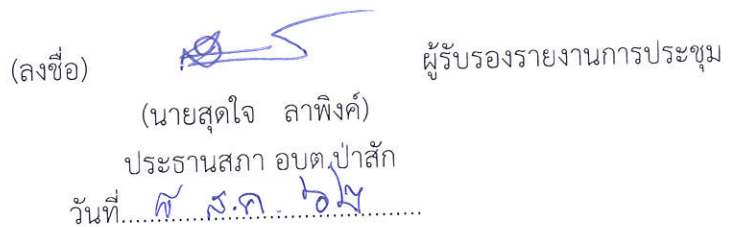 (ลงชื่อ) ผู้รับรองรายงานการประชุม
(นายสุดใจ ลาพิงค์)
ประธานสภา อบต.ป่าสัก
วันที่..... ส.ค. ๖๒.....